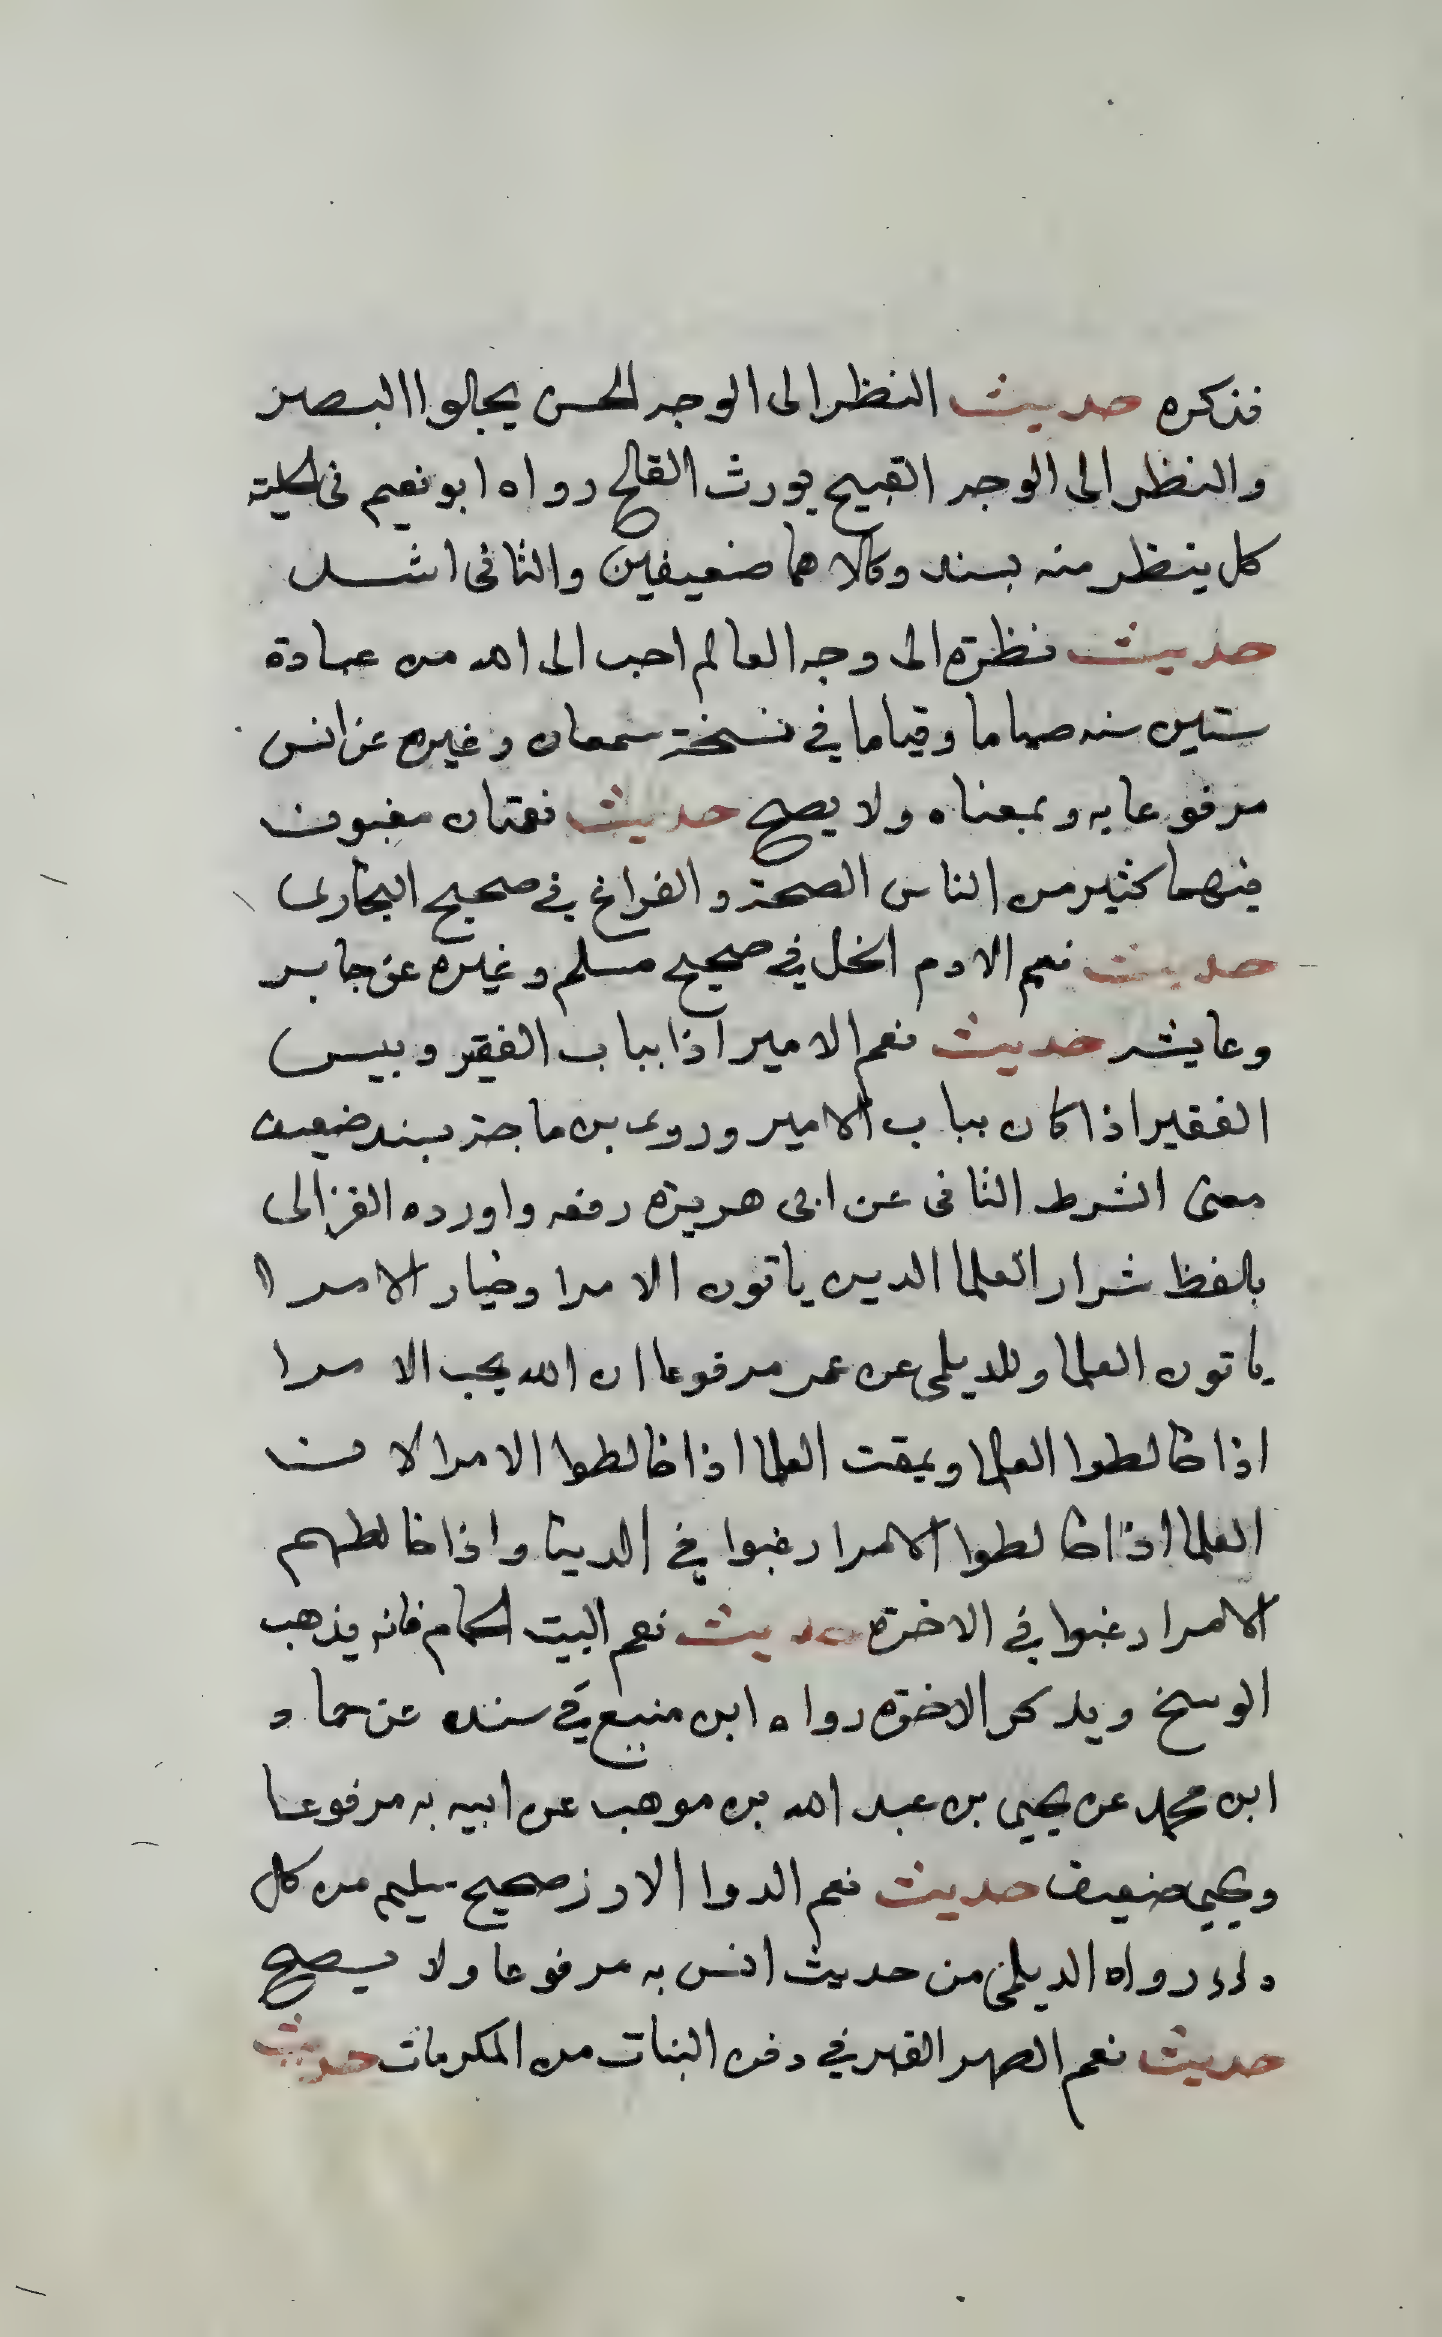 فذكره حديث النظر الى الوجه الحسن يجالوا البصر
والنظر الى الوجه القبيح يورث القلح رواه ابو نعيم فى الحلية
كل ينظر منه بسند وكالاهما ضعيفين والثانى اشد
حديث نظرة الى وجه العالم احب الى الله من عبادة
ستين سنه صياما وقياما في نسخة سمعان وغيره عن انس
مرفوعا به وبمعناه ولا يصح حديث نعمتان مغبون
فيهما كثير من الناس الصحة والفراغ في صحيح البخارى
حديث نعم الادم الخل في صحيح مسلم وغيره عن جابر
وعايشه حديث نعم الامير اذا بباب الفقير وبيس
الفقير اذا كان بباب الامير وروى بن ماجة بسند ضعيف
معنى الشرط الثانى عن ابى هريرة رفعه واورده الغزالى
بلفظ شرار العلما الدين ياتون الامرا وخيار الامرا
ياتون العلما وللديلمى عن عمر مرفوعا ان الله يحب الامرا
اذا خالطوا العلما ويمقت العلما اذا خالطوا الامرا لان
العلما اذا خالطوا الامرا رغبوا في الدينا واذا خالطهم
الامرا رغبوا في الاخرة حديث نعم البيت الحمام فانه يذهب
الوسخ ويذكر الاخرة رواه ابن منيع في سنده عن حماد
ابن محمد عن يحيى بن عبد الله بن موهب عن ابيه به مرفوعا
ويحيى ضعيف حديث نعم الدوا الارز صحيح سليم من كل
داء رواه الديلمى من حديث انس به مرفوعا ولا يصح
حديث نعم الصهر القبر في دفن البنات من المكرمات حديث